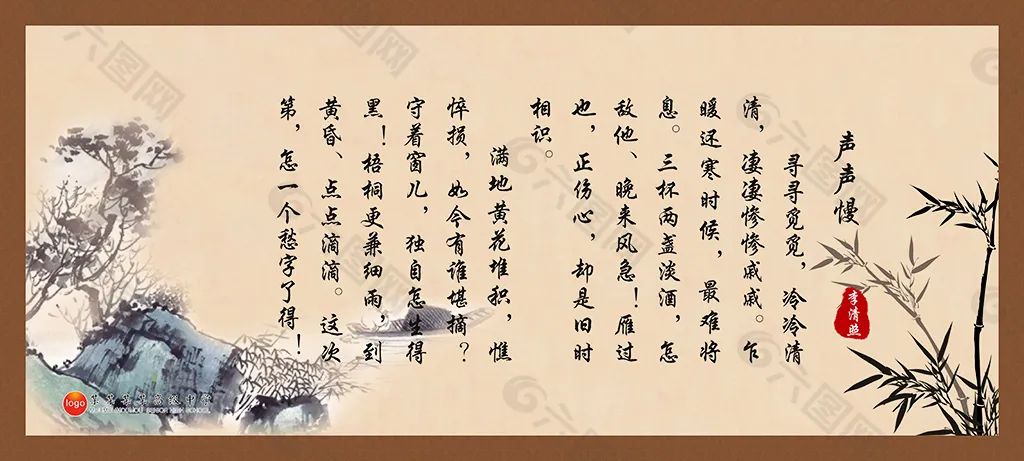 声声慢
寻寻觅觅，冷冷清
清，凄凄惨惨戚戚。乍
暖还寒时候，最难将
息。三杯两盏淡酒，怎
敌他、晚来风急！雁过
也，正伤心，却是旧时
相识。
满地黄花堆积，憔
悴损，如今有谁堪摘？
守着窗儿，独自怎生得
黑！梧桐更兼细雨，到
黄昏、点点滴滴。这次
第，怎一个愁字了得！
李清照
logo
某某某某高级中学
六图网